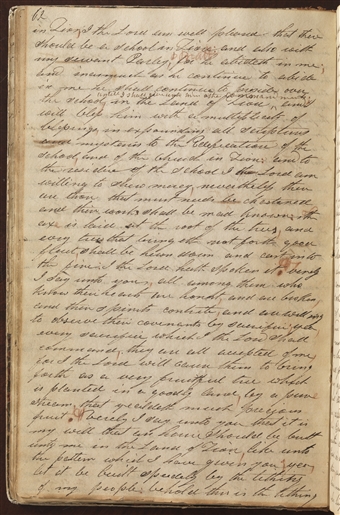 62
in Zion I the Lord am well pleased that there
should be a school in Zion and also with
my servant Parley for he abideth in me
and inasmuch as he continue to abide
in me he shall continue to preside over
the school in the Land of Zion and I
will bless him with a multiplicity of
blesings in expounding all scriptures
and mysteries to the edification of the
school and of the church in Zion and to
the residue of the school I the Lord am
willing to shew mercy nevertheless there
are those that must needs be chastened
and their works shall be mad known the
axe is laid at the root of the trees and
every tree that bringeth not forth good
fruit shall be hewn down and cast into
the fire I the Lord hath spoken it verily
I say unto you all among them who
know their hearts are honest and are broken
and their spirits contrite and are willing
to observe their covenants by sacrifice yea
every sacrifice which I the Lord shall
command they are all accepted of me
for I the Lord will cause them to bring
forth as a very fruitful tree which
is planted in a goodly land by a pure
stream that yieldeth much precious
fruit Verily I say unto you that it is
my will that an house should be built
unto me in the Land of Zion like unto
the pattern which I have given you yea
let it be built speedily by the tithing
of my people behold this is the tithing